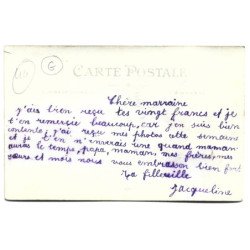 CARTE POSTALE
Chère marraine
j'ais bien reçu tes vingt francs et je
t'en remercie beaucoup, car j'en suis bien
contente, j'ai reçu mes photos cette semaine
et je t'en n'enverais une quand maman
auras le temps, papa, maman, mes frères, mes
sœurs et mois nous vous embrassons bien fort
Ta filleuille
Jacqueline